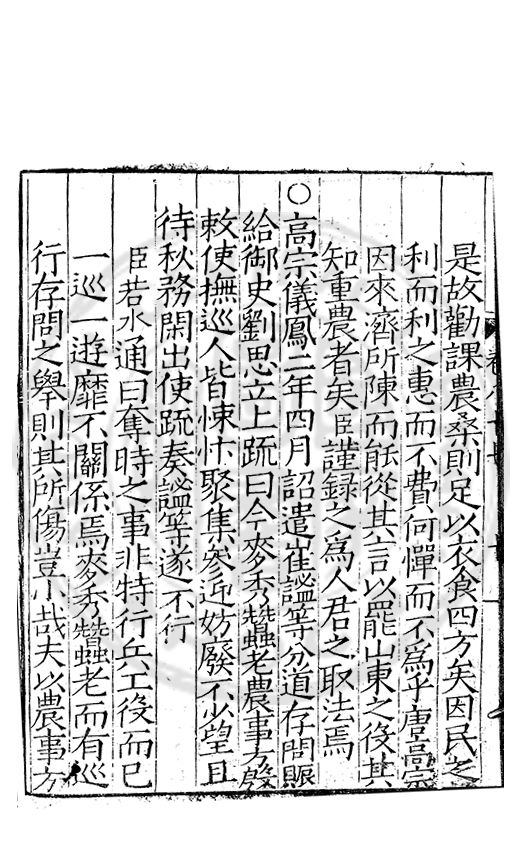 是故勸課農桑則足以衣食四方矣因民之
利而利之惠而不費何憚而不為乎唐高宗
因來濟所陳而能從其言以罷山東之役其
知重農者矣臣謹録之為人君之取法焉
○高宗儀鳳二年四月詔遣崔謐等分道存問賑
給御史劉思立上疏曰今麥秀蠶老農事方殷
敕使撫巡人皆悚忭聚集參迎妨廢不少望且
待秋務閑出使疏奏謐等遂不行
臣若水通曰奪時之事非特行兵工役而已
一巡一遊靡不關係焉麥秀蠶老而有巡
行存問之舉則其所傷豈小哉夫以農事方